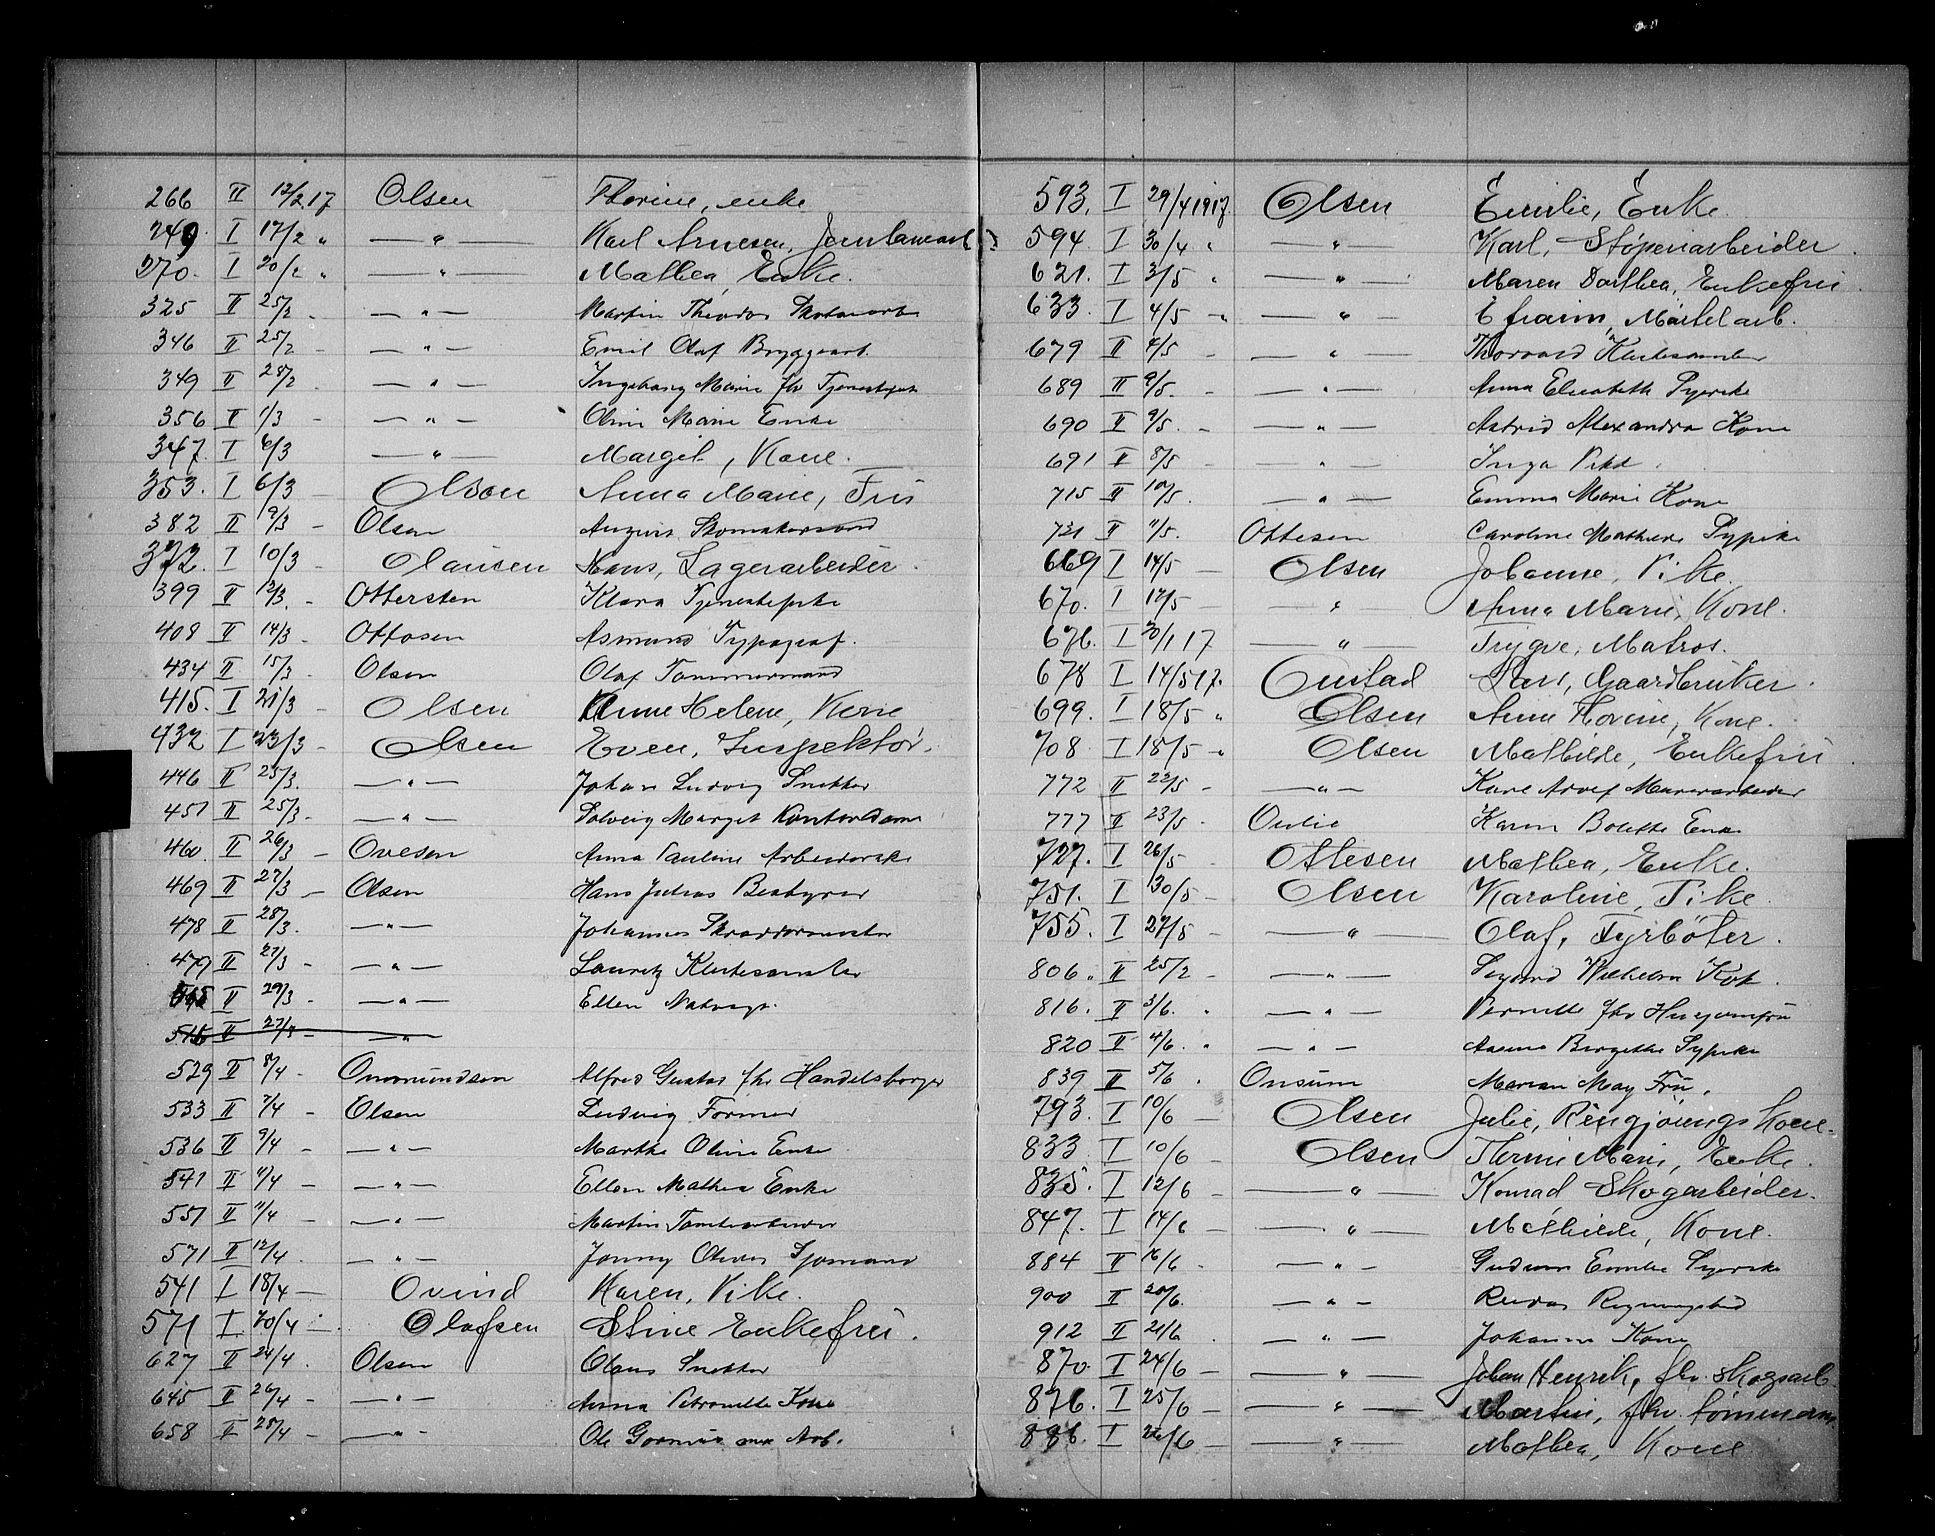 266 II 12/2 17 Olsen Florine, enke
249. I 17/2 " — " — Karl Arnesen, Jernbanearb
270. I 20/2 " — " — Mathea, Enke.
325 II 25/2 - — " — Martin Theodor
346 II 25/2 - — " — Emil Olaf Bryggearb.
349 II 28/2 - — " — Ingeborg Marie fhv Tjenestepike
356 II 1/3 - — " — Oline Marie Enke
347. I 6/3 — " — Margit, Kone.
353. I 6/3 — Olsen Anna Marie, Frü
382 II 9/3 - Olsen August Skomakersvend
372. I 10/3 - Olausen Hans, Lagerarbeider.
399 II 12/3. - Ottersten Klara Tjenestepike
408 II 14/3. - Ottosen Asmund Typograf.
434 II 15/3 - Olsen Olaf Tømmermand
415. I 21/3 - Olsen Anne Helene, Kone
432 I 23/3 - Olsen Even, Inspektör.
446 II 25/3. — " — Johan Ludvig Snekker
451 II 25/3. — " — Solveig Margit Kontordame
460. II 26/3 - Ovesen Anna Pauline Arbeiderske
469 II 27/3 - Olsen Hans Julius Bestyrer
478 II 28/3. — " — Johannes Skræddermester
479 II 27/3 - — " — Lauritz Klutesamler
II 29/3 - — " — Ellen
515 II 27/3 - — " —
529 II 8/4 - Ommundsen Alfred Gustav fhv Handelsborger
533 II 7/4 - Olsen Ludvig Former
536 II 9/4 - — " — Marthe Oline Enke
541 II 11/4 - — " — Ellen Mathea Enke
557 II 11/4 - — " — Martin Tomtearbeider
571 II 12/4. — " — Jonny Oliver Sjømand
541 I 18/4 — Ovind Karen, Pike.
571 I 20/4 — Olafsen Stine Enkefrü.
627 II 24/4. Olsen Olaus Snekker
645 II 26/4 - — " — Anna Petronille Kone
658 II 28/4 - — " — Ole Arb.
593. I 29/4 1917. Olsen Emilie, Enke.
594. I 30/4 " — " — Karl, Støperiarbeider
621. I 3/5 " — " — Maren Dorthea, Enkefrü.
633. I 4/5 - " — " — Efraim, Møbelarb.
679 II 4/5 - — " — Thorvald Klutesamler
689 II 9/5. - — " — Anna Elisabeth Syerske
690 II 9/5. - — " — Astrid Alexandra Kone
691 II 8/5 - — " — Inga Pike.
715 II 10/5. — " — Emma Marie Kone
721 II 11/5. Ottesen Caroline Mathilde Sypike
669 I 14/5 — Olsen Johanne, Pike.
670. I 12/5 — " — Anna Marie, Kone.
676. I 20/1 17 — " — Trygve, Matros.
678 I 14/5 17. Oustad Lars, Gaardbruker.
699. I 18/5 " Olsen Anne Hovine, Kone.
708. I 18/5 - " Olsen Mathilde, Enkefrü
772 II 22/5 - — " — Karl Adolf Murerarbeider
777 II 23/5. Oulie Karen Bolette Enke
727. I 26/5 - Ottesen Mathea, Enke.
751. I 30/5 - Olsen Karoline, Pike.
755. I 27/5 - — " — Olaf, Fyrböter.
806. II 25/2 - — " — Sigurd Wilhelm Kok.
816. II 3/6. " — " — Pernille fhv Husjomfru
820 II 4/6. " — " — Aasene Birgitte Sypike
839 II 5/6 . Onsum Marian May Frü.
793. I 10/6 — Olsen Julie, Rengjörings Kone.
833 I 10/6 — Olsen Thrine Marie, Enke.
835. I 12/6 — " — Konrad Skogarbeider.
847. I 14/6 — " — Mathilde, Kone.
884 II 16/6 - — " — Gudrun Emilie Syerske
900 II 20/6. — " — Reidar
912 II 21/6 . — " — Johanne Kone
870. I 24/6 — " — Johan Henrik, fhv. Skogsarb.
876. I 25/6 — " — Martin, fhv. tömmerm.
896. I 26/6 — " — Mathea, Kone